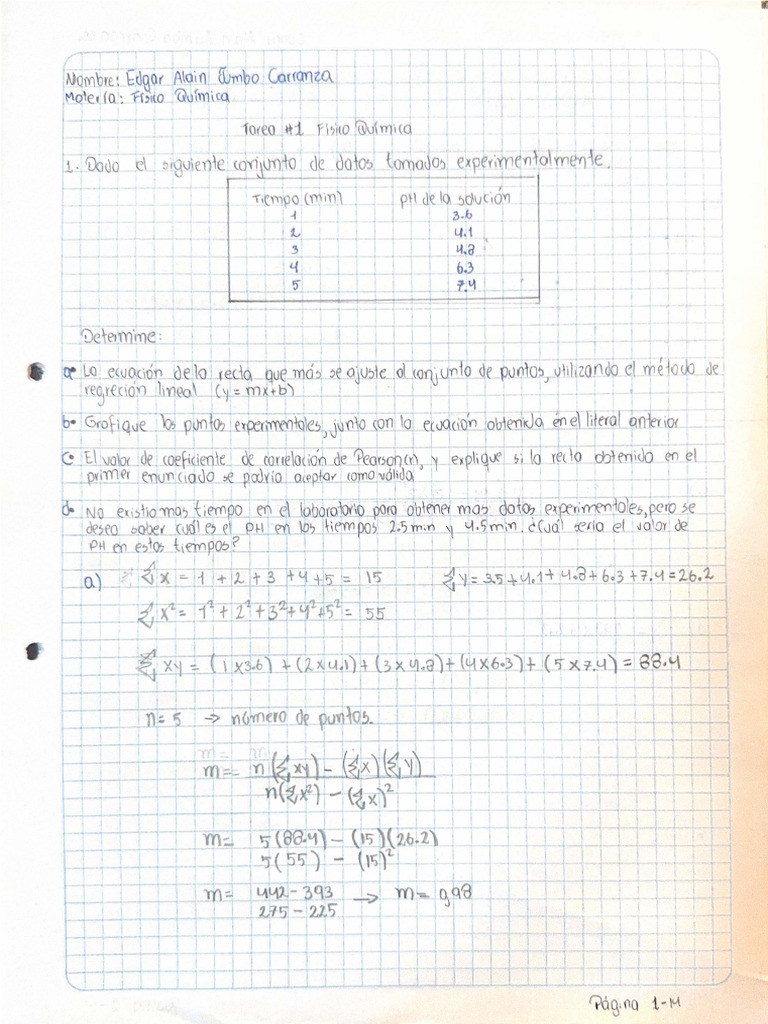 Nombre: Edgar Alain Jumbo Carranza
Materia: Fisico Química
Tarea #1 Fisico Química
1. Dado el siguiente conjunto de datos tomados experimentalmente.
Tiempo (min) PH de la solución
1 3.6
2 4.1
3 4.8
4 6.3
5 7.4
Determine:
a• La ecuación de la recta que más se ajuste al conjunto de puntos, utilizando el método de
regreción lineal (y = mx+b)
b• Grafique los puntos experimentales, junto con la ecuación obtenida en el literal anterior
c• El valor de coeficiente de correlación de Pearson(r), y explique si la recta obtenida en el
primer enunciado se podría aceptar como válida
d• No existio mas tiempo en el laboratorio para obtener mas datos experimentales, pero se
desea saber cuál es el PH en los tiempos 2.5 min y 4.5 min. ¿Cuál seria el valor de
PH en estos tiempos?
a) Σ x = 1 + 2 + 3 + 4 + 5 = 15 Σ y = 3.5 + 4.1 + 4.8 + 6.3 + 7.4 = 26.2
Σ x² = 1² + 2² + 3² + 4² + 5² = 55
Σ xy = (1 x 3.6) + (2 x 4.1) + (3 x 4.8) + (4 x 6.3) + (5 x 7.4) = 88.4
n = 5 → número de puntos.
m = n(Σ xy) - (Σ x)(Σ y)
n(Σ x²) - (Σ x)²
m = 5(88.4) - (15)(26.2)
5(55) - (15)²
m = 442 - 393 → m = 0,98
275 - 225
Página 1-M